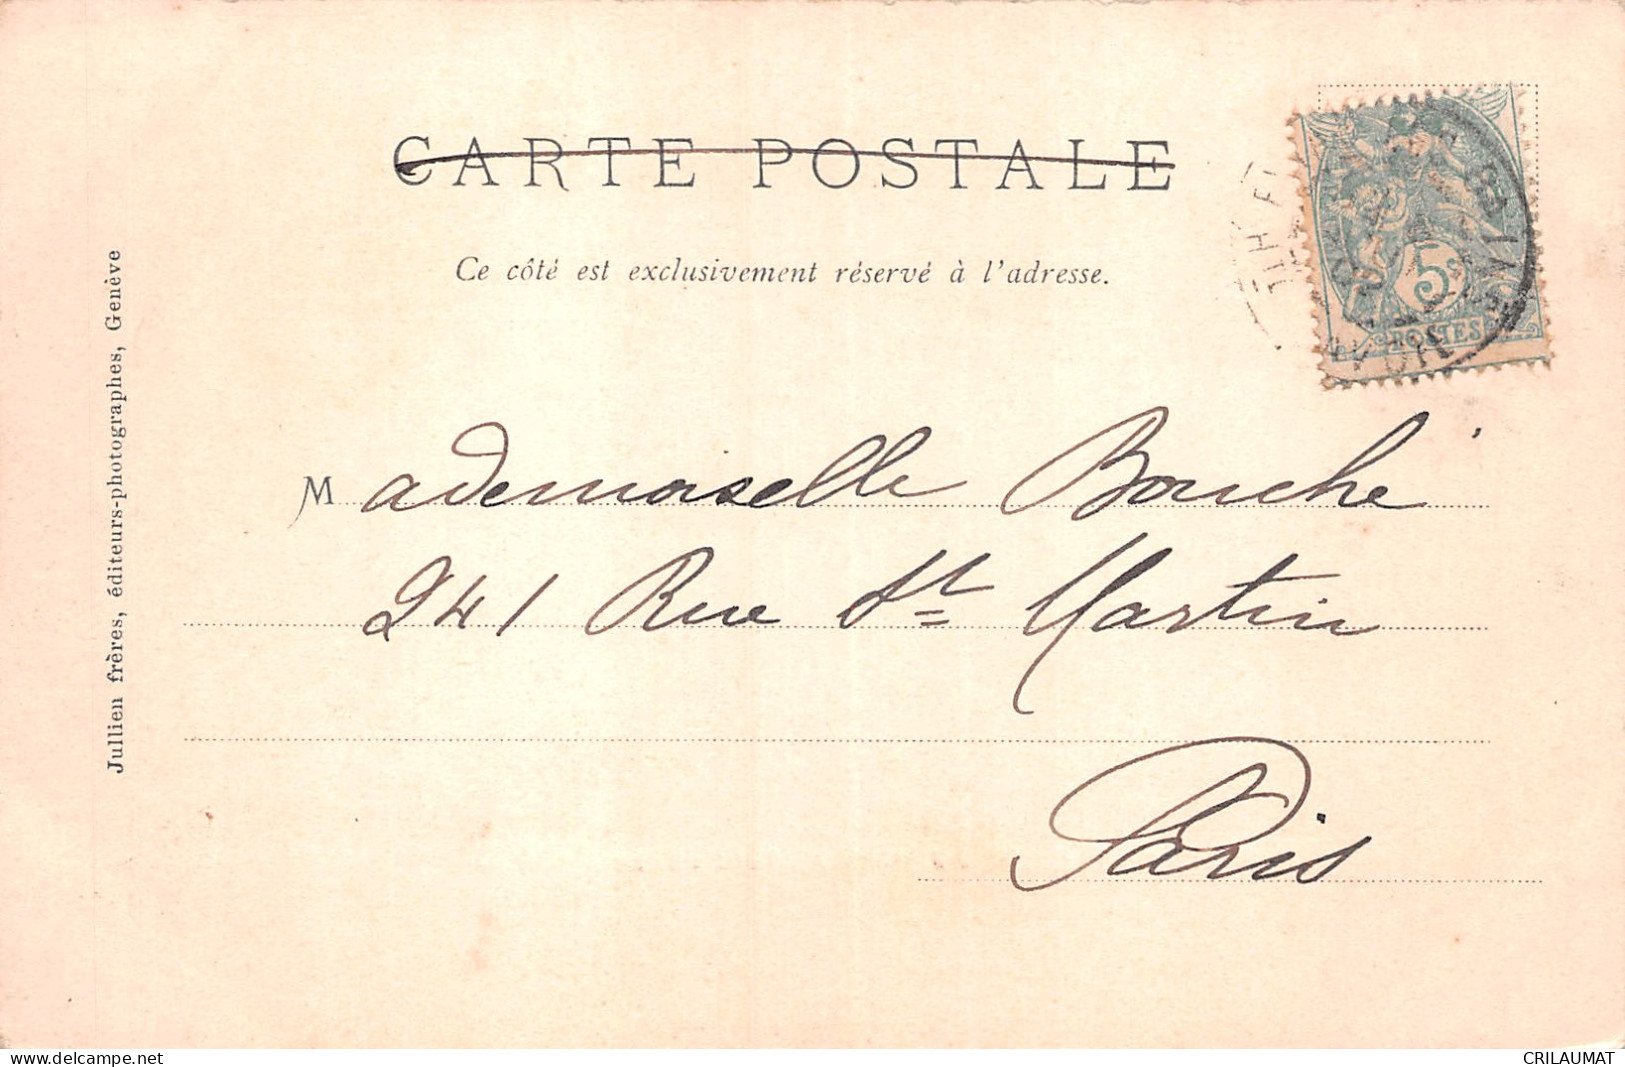 CARTE POSTALE
Ce côté est exclusivement réservé à l'adresse.
5c
POSTES
Mademoiselle Bouché
241 Rue St Martin
Paris
Jullien frères, éditeurs-photographes, Genève
www.delcampe.net
CRILAUMAT